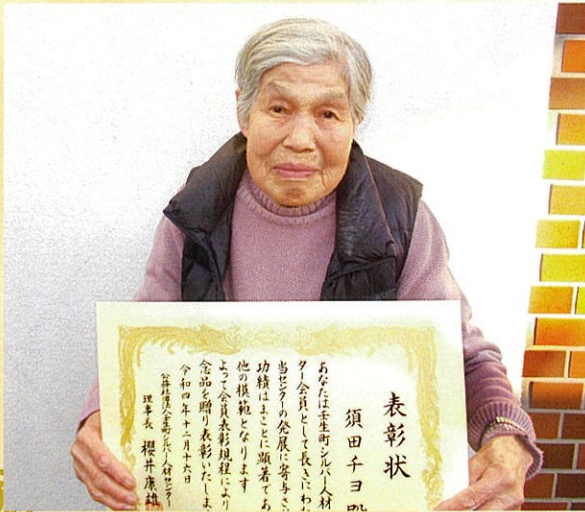 表彰状
須田チヨ殿
あなたは壬生町シルバー人材
ター会員として長きにわた
当センターの発展に寄与さ
功績はまことに顕著であ
他の模範となります
よって会員表彰規程により
念品を贈り表彰いたしま
令和四年十二月十六日
公益社団法人壬生町シルバー人材センター
理事長 櫻井康雄